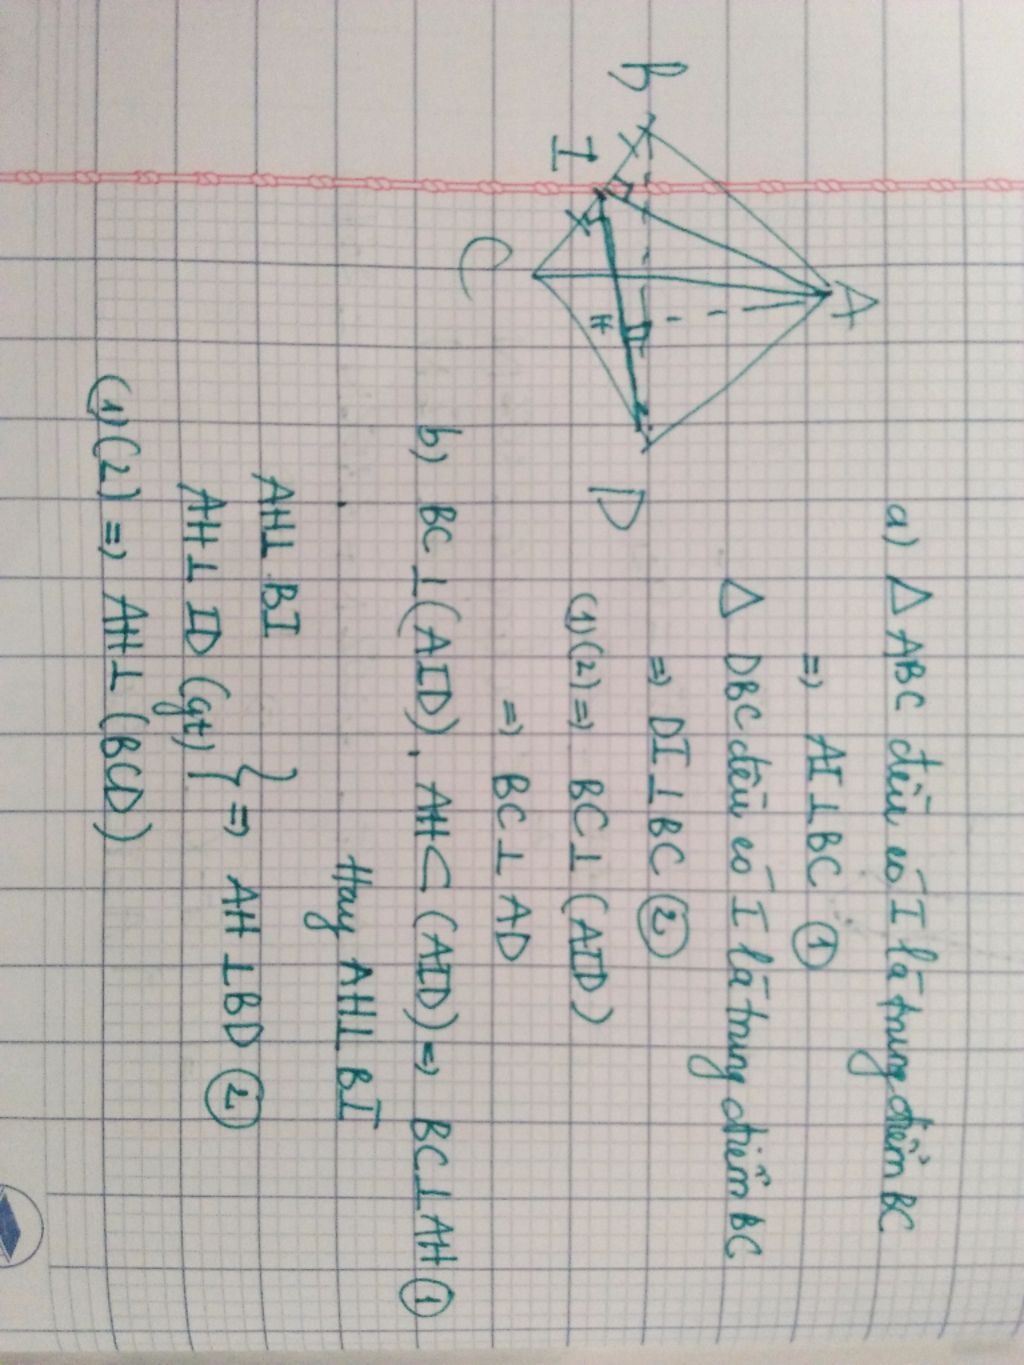 B
I
C
A
H
D
a) Δ ABC đều có I là trung điểm BC
=> AI⊥BC ①
Δ DBC đều có I là trung điểm BC
=> DI⊥BC ②
(1)(2)=> BC⊥(AID)
=> BC⊥AD
b) BC⊥(AID), AH⊂(AID)=> BC⊥AH ①
Hay AH⊥BI
AH⊥BI
AH⊥ID (gt) } => AH⊥BD ②
(1)(2)=> AH⊥(BCD)